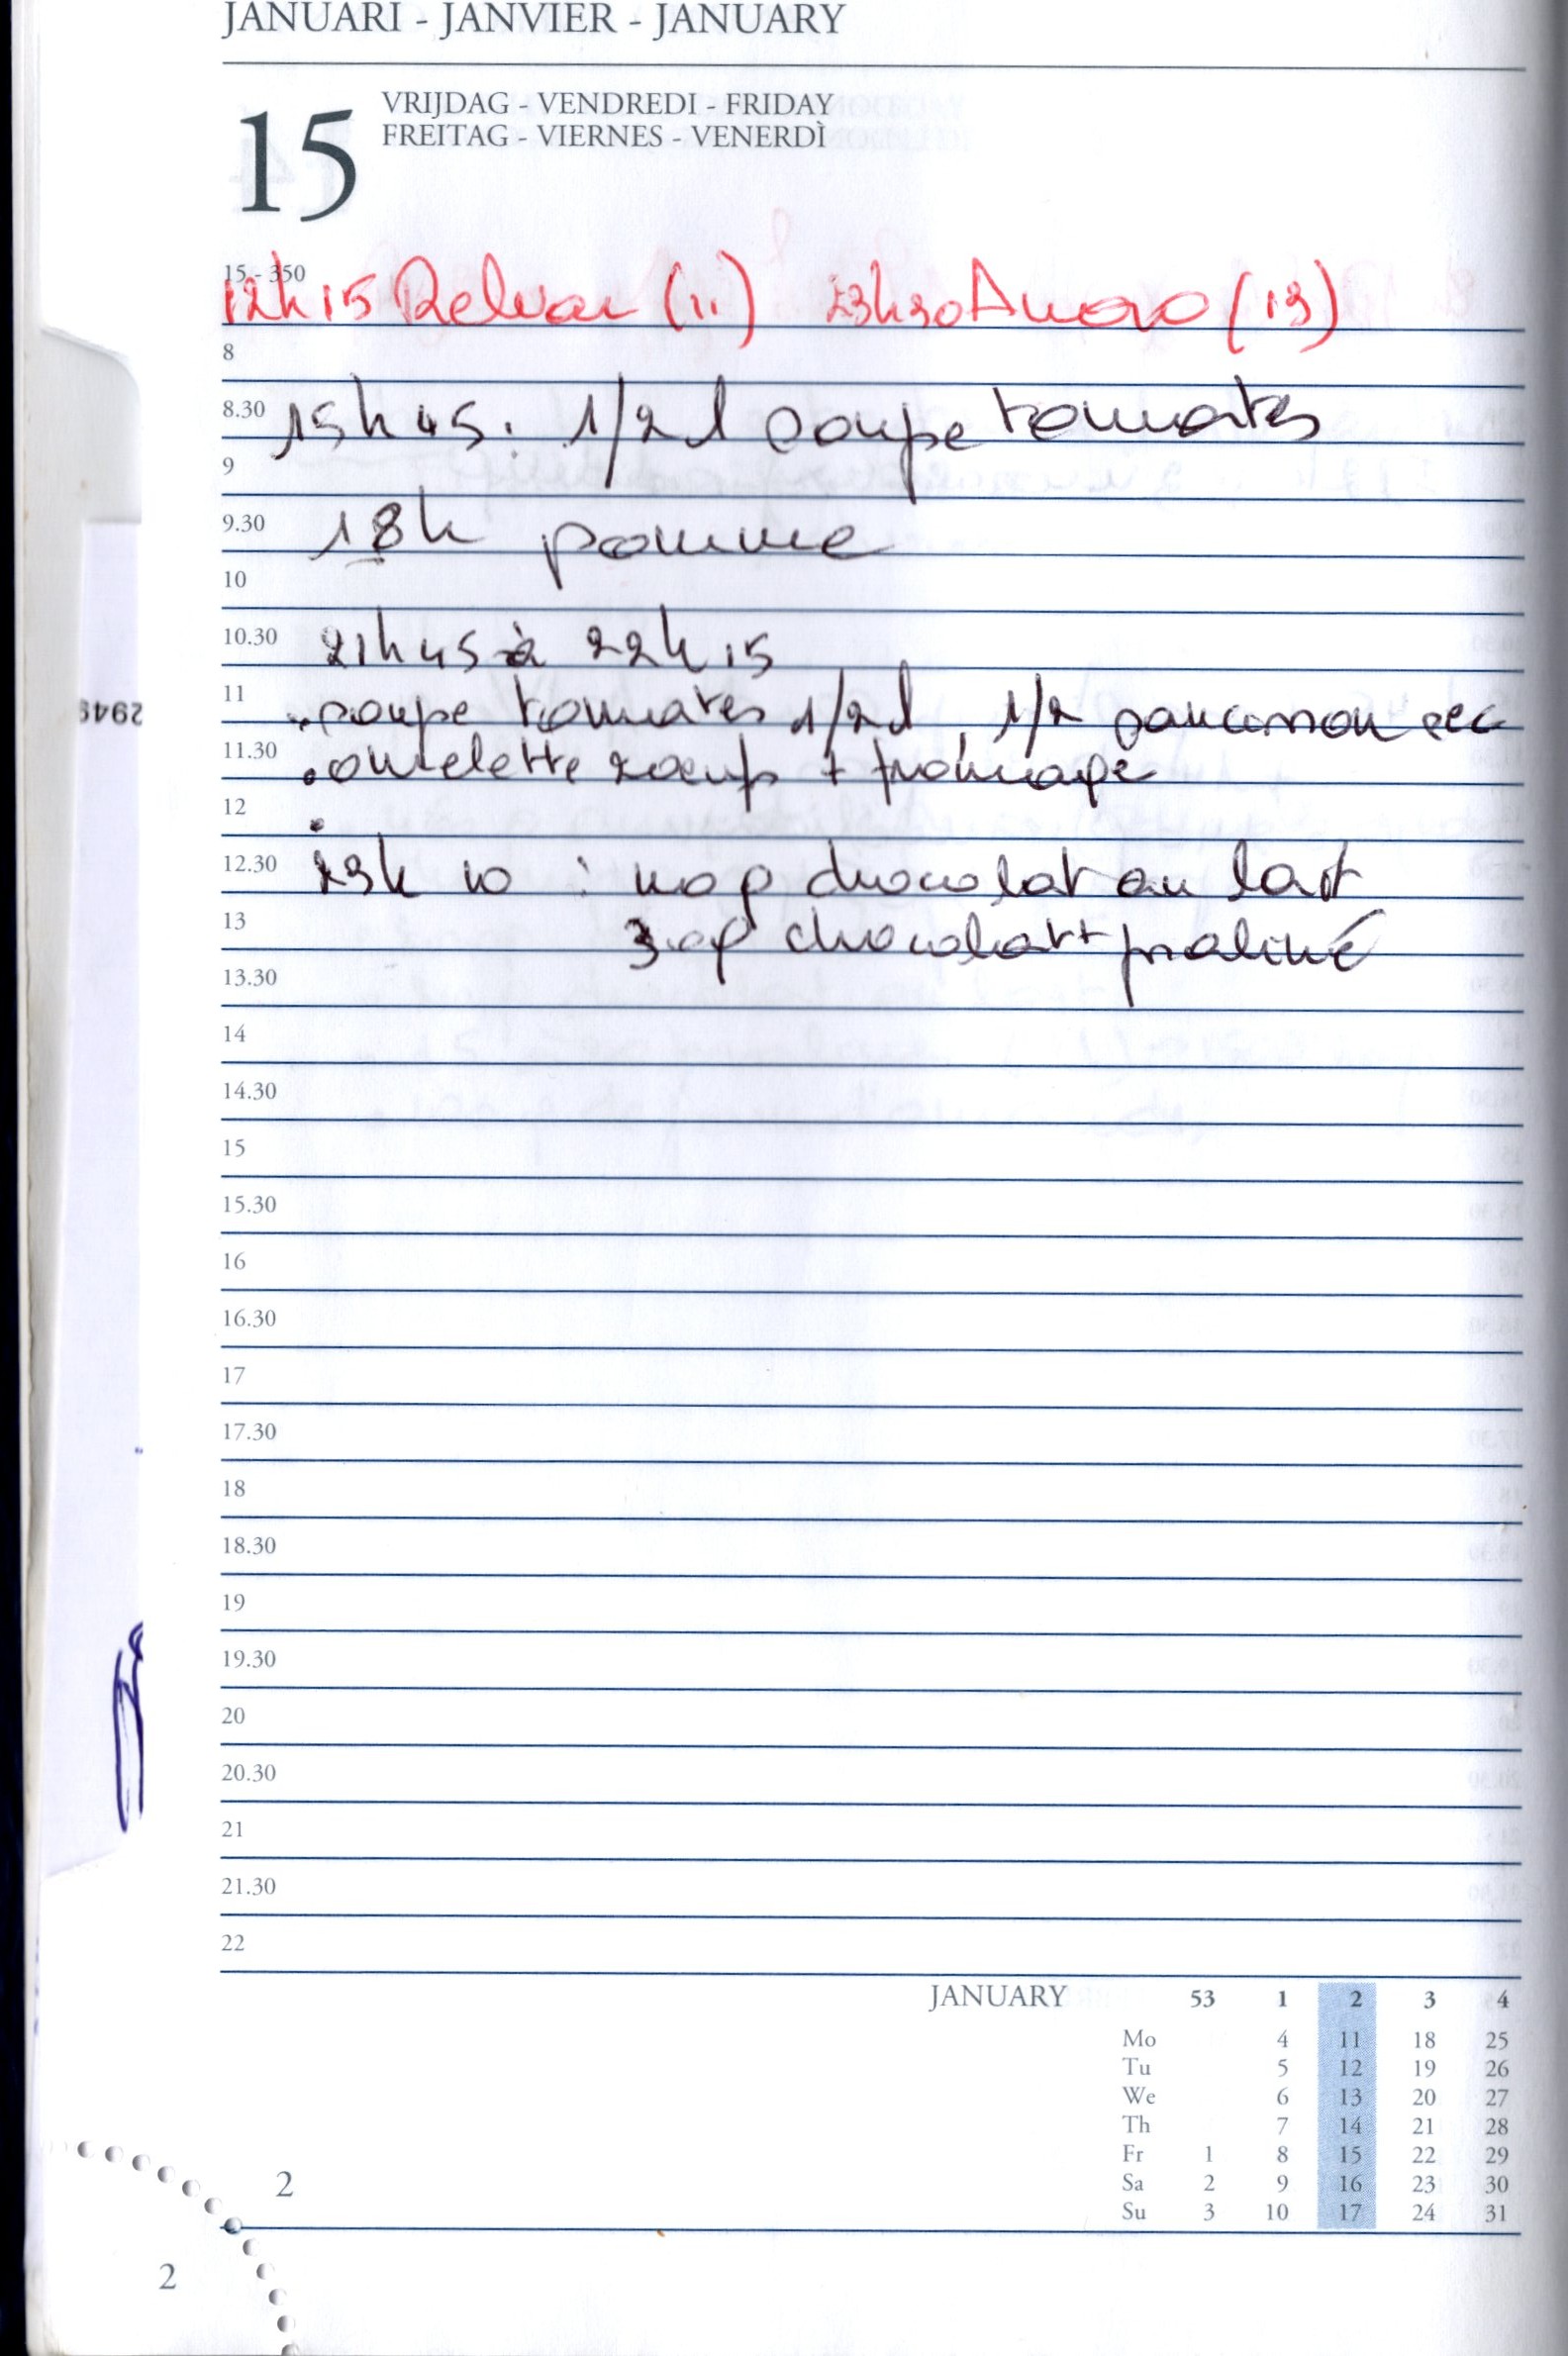 JANUARI - JANVIER - JANUARY
15
VRIJDAG - VENDREDI - FRIDAY
FREITAG - VIERNES - VENERDÌ
15 - 350
12h15 (11) 23h30 (13)
8
8.30 15h45. 1/2 l soupe tomates
9
9.30 18h pomme
10
10.30 21h45 à 22h15
11 soupe tomates 1/2 l, 1/2 saucisson sec
11.30 omelette 2 oeufs + fromage
12
12.30 23h10 : chocolat au lait
13 chocolat + praliné
13.30
14
14.30
15
15.30
16
16.30
17
17.30
18
18.30
19
19.30
20
20.30
21
21.30
22
JANUARY 53 1 2 3 4
Mo 4 11 18 25
Tu 5 12 19 26
We 6 13 20 27
Th 7 14 21 28
Fr 1 8 15 22 29
Sa 2 9 16 23 30
Su 3 10 17 24 31
2
2
2949